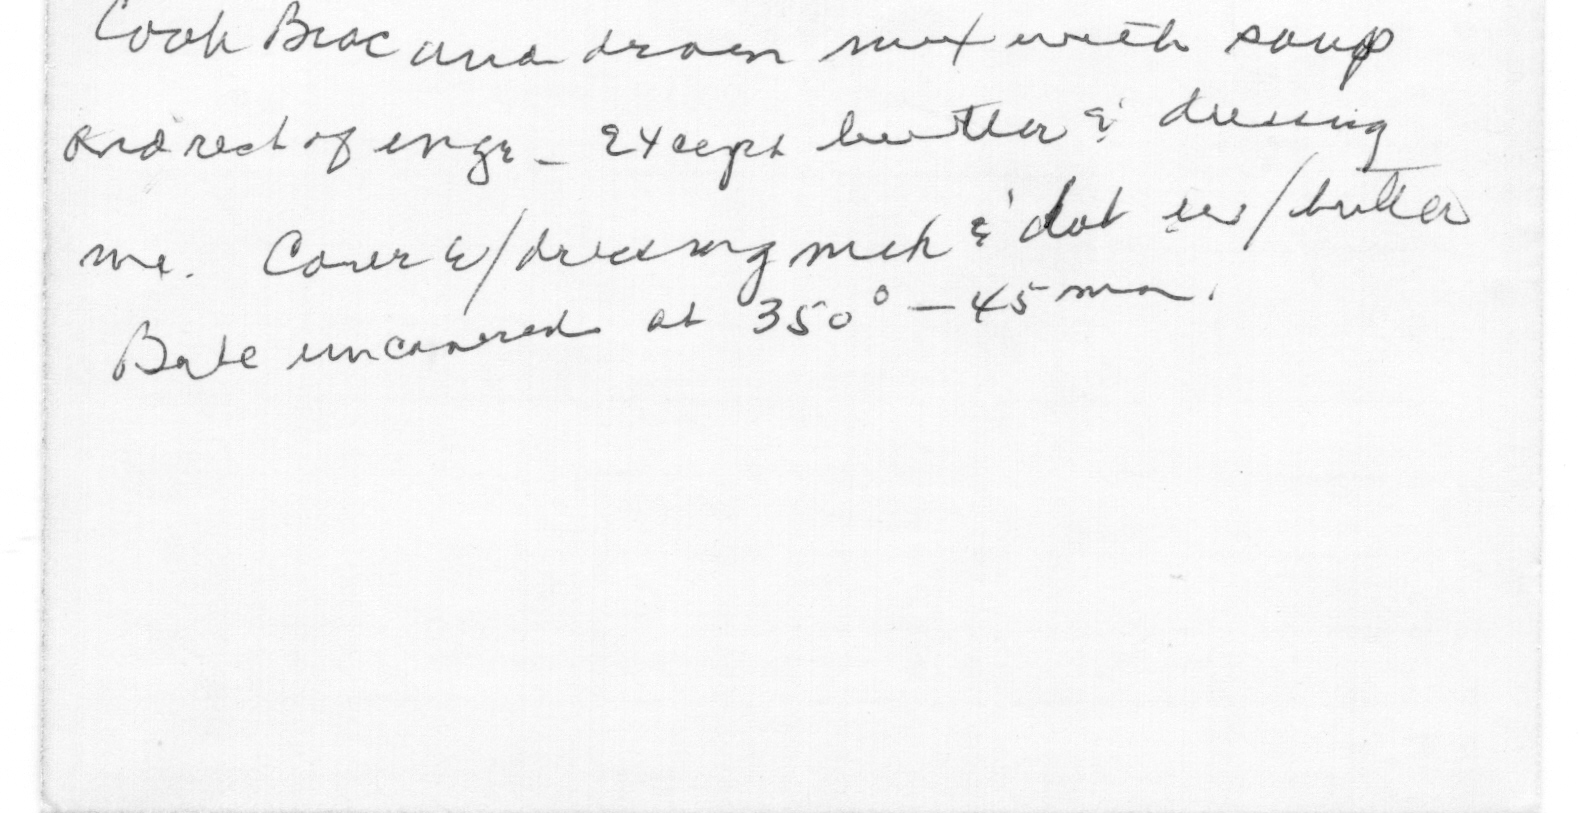 Cook Broc and drain mix with soup
and rest of ingr - Except butter & dressing
mix. Cover w/dressing mix & dot w/butter
Bake uncovered at 350° - 45 min.